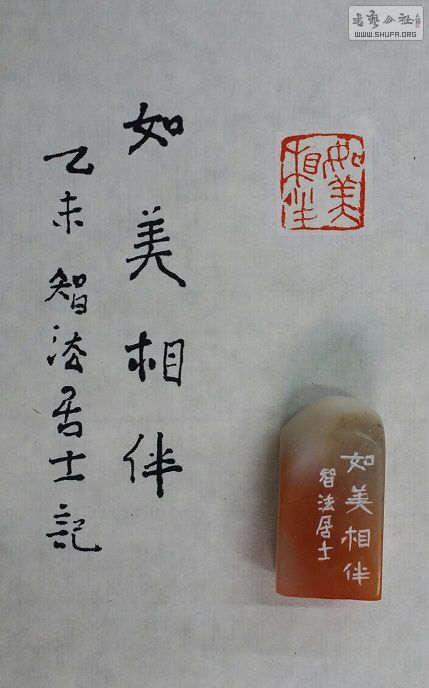 如美相伴
乙未智法居士記
如美相伴
如美相伴
智法居士
書藝公社
WWW.SHUFA.ORG